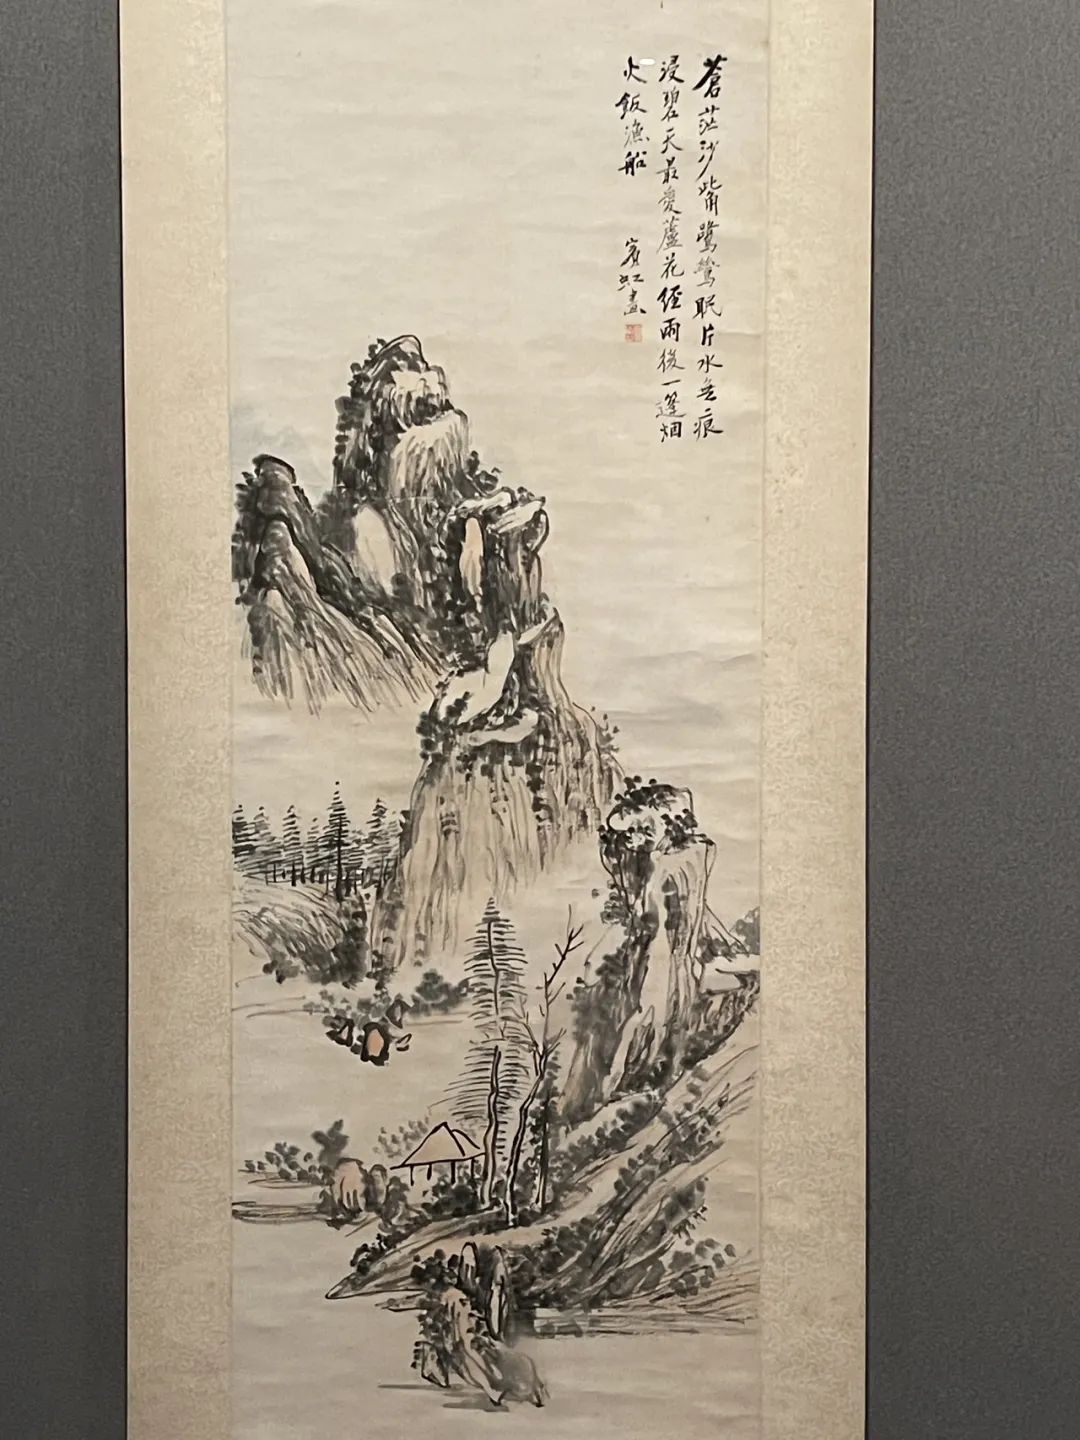 蒼茫沙觜鷺鷥眠片水無痕
浸碧天最愛蘆花經雨後一篷烟
火飯漁船
賓虹畫